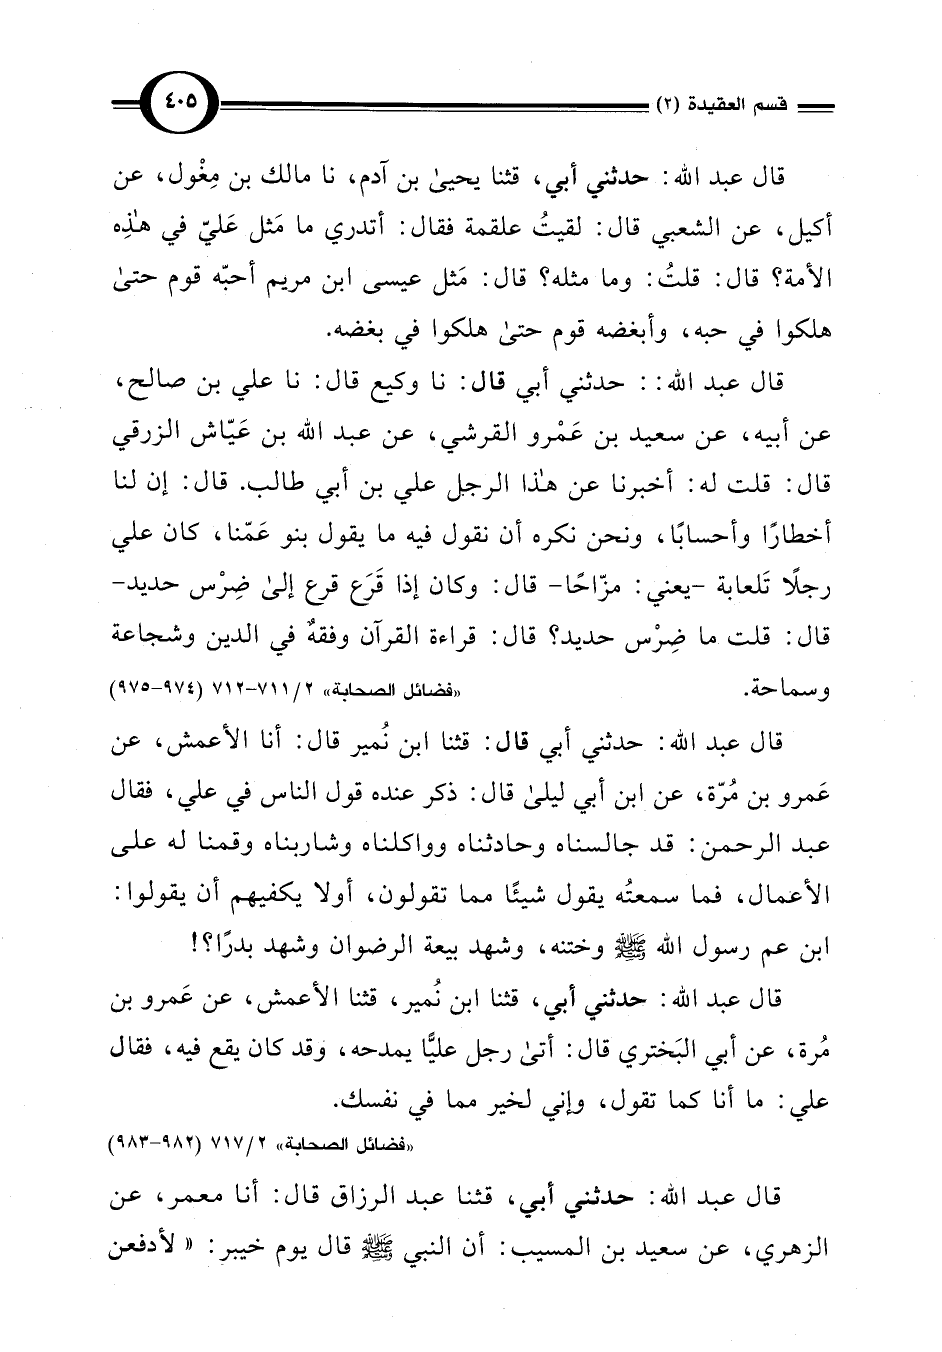 قسم العقيدة (٢)
٤٠٥
قال عبد الله: حدثني أبي، قثنا يحيىٰ بن آدم، نا مالك بن مِغْول، عن
أكيل، عن الشعبي قال: لقيتُ علقمة فقال: أتدري ما مَثل عَليّ في هـٰذِه
الأمة؟ قال: قلتُ: وما مثله؟ قال: مَثل عيسى ابن مريم أحبّه قوم حتىٰ
هلكوا في حبه، وأبغضه قوم حتىٰ هلكوا في بغضه.
قال عبد الله: : حدثني أبي قال: نا وكيع قال: نا علي بن صالح،
عن أبيه، عن سعيد بن عَمْرو القرشي، عن عبد الله بن عَيّاش الزرقي
قال: قلت له: أخبرنا عن هـٰذا الرجل علي بن أبي طالب. قال: إن لنا
أخطارًا وأحسابًا، ونحن نكره أن نقول فيه ما يقول بنو عَمّنا، كان علي
رجلًا تَلعابة -يعني: مزّاحًا- قال: وكان إذا قَرَع قرع إلىٰ ضِرْس حديد-
قال: قلت ما ضِرْس حديد؟ قال: قراءة القرآن وفقهٌ في الدين وشجاعة
وسماحة. «فضائل الصحابة» ٢/ ٧١١-٧١٢ (٩٧٤-٩٧٥)
قال عبد الله: حدثني أبي قال: قثنا ابن نُمير قال: أنا الأعمش، عن
عَمرو بن مُرّة، عن ابن أبي ليلىٰ قال: ذكر عنده قول الناس في علي، فقال
عبد الرحمن: قد جالسناه وحادثناه وواكلناه وشاربناه وقمنا له على
الأعمال، فما سمعتُه يقول شيئًا مما تقولون، أولا يكفيهم أن يقولوا:
ابن عم رسول الله ﷺ وختنه، وشهد بيعة الرضوان وشهد بدرًا؟!
قال عبد الله: حدثني أبي، قثنا ابن نُمير، قثنا الأعمش، عن عَمرو بن
مُرة، عن أبي البَختري قال: أتىٰ رجل عليًّا يمدحه، وقد كان يقع فيه، فقال
علي: ما أنا كما تقول، وإني لخير مما في نفسك.
«فضائل الصحابة» ٢/ ٧١٧ (٩٨٢-٩٨٣)
قال عبد الله: حدثني أبي، قثنا عبد الرزاق قال: أنا معمر، عن
الزهري، عن سعيد بن المسيب: أن النبي ﷺ قال يوم خيبر: « لأدفعن